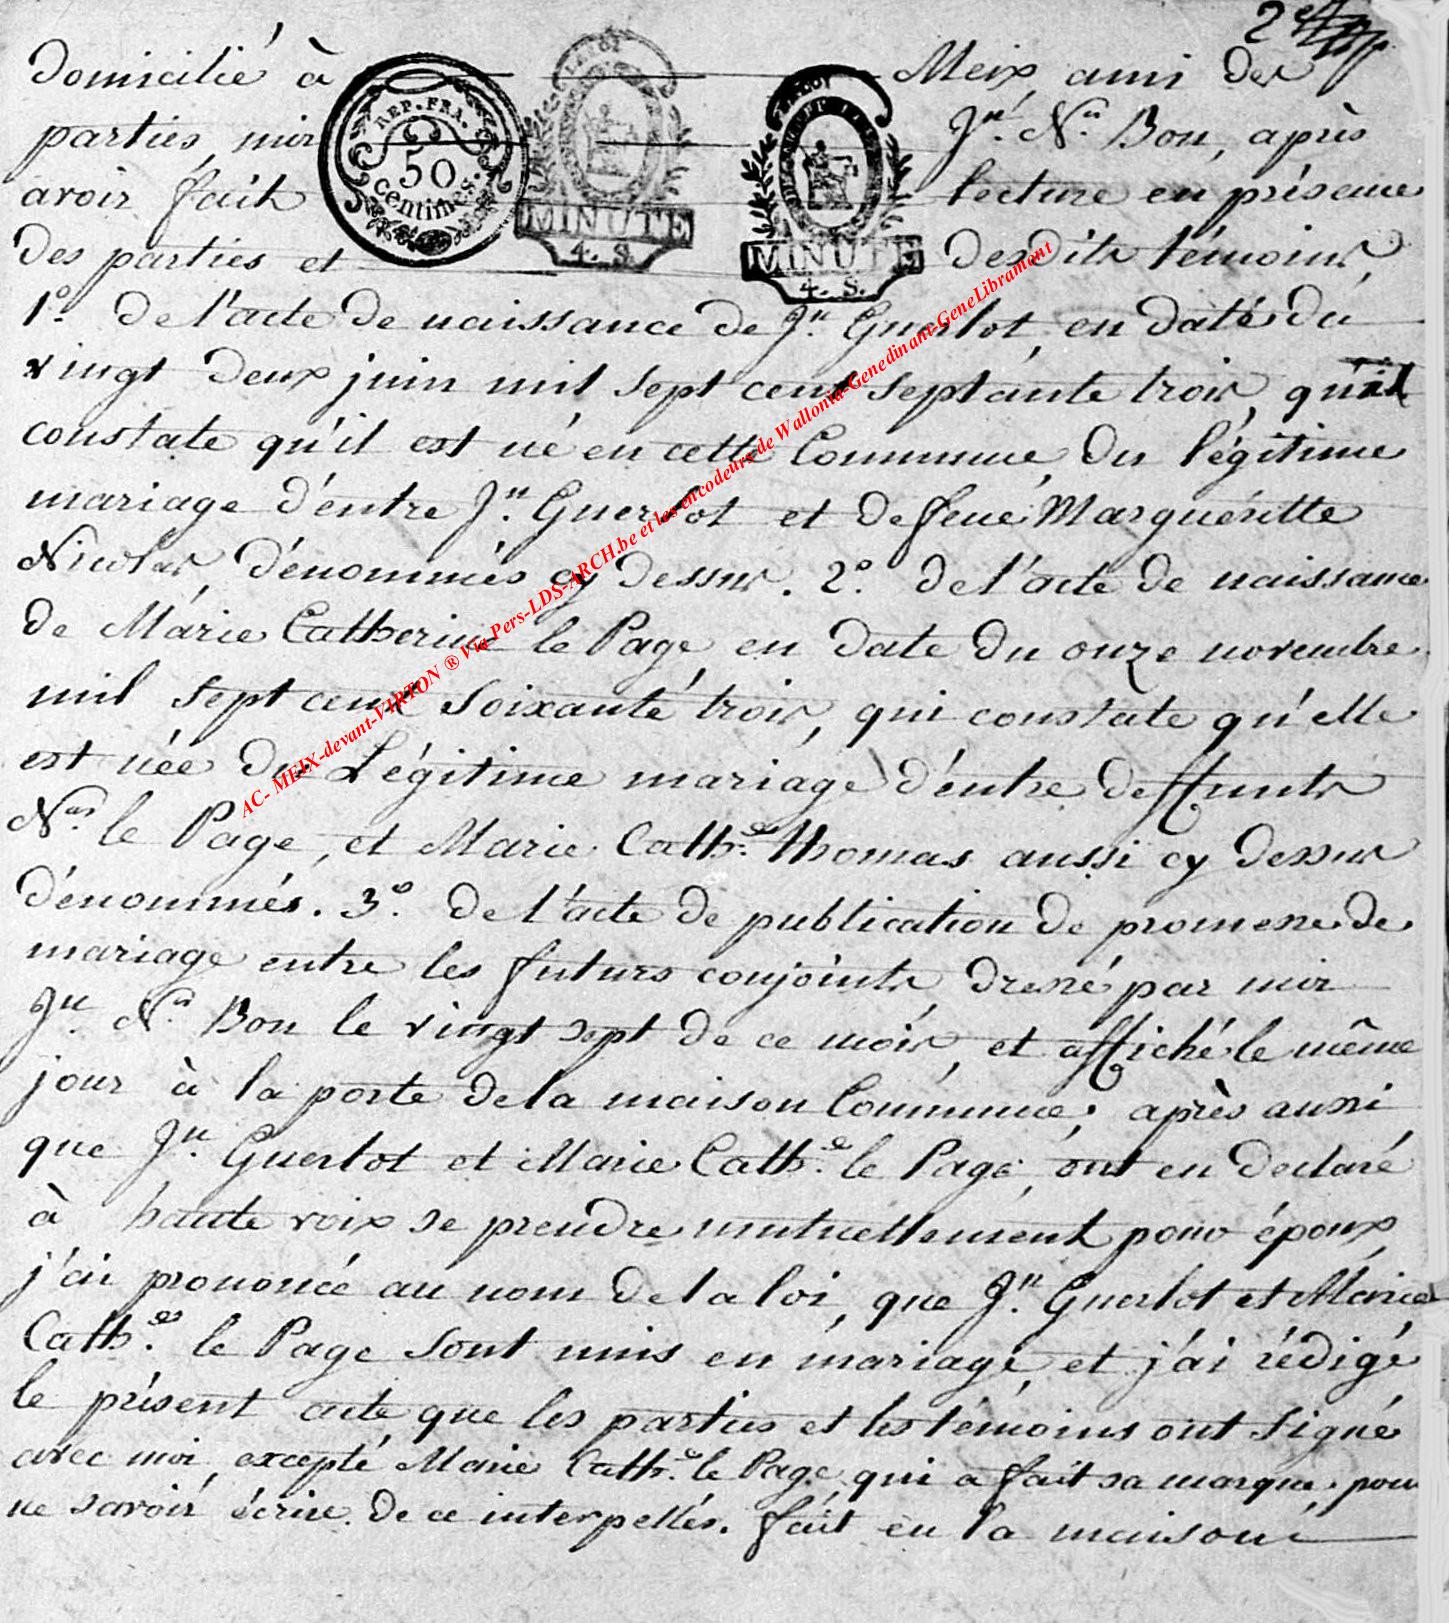 2e
domicilié à Meix, ami des
parties, moi Jn. Ns. Bon, après
avoir fait lecture en présence
des parties et desdits témoins,
REP. FRA.
50
centimes.
MINUTE
4. S.
MINUTE
4. S.
1º. de l'acte de naissance de Jn. Guerlot, en daté du
vingt deux juin mil sept cent septante trois, qu'il
constate qu'il est né en cette Commune, du légitime
mariage d'entre Jn. Guerlot et de feue Marguéritte
Nicolas, dénommés cy dessus. 2º. de l'acte de naissance
de Márie Catherine le Page, en date du onze novembre
mil sept cent soixante trois, qui constate qu'elle
est née du Légitime mariage d'entre deffunts
Nas. le Page, et Marie Cathe. thomas aussi cy dessus
dénommés. 3º. de l'acte de publication de promesse de
mariage entre les futurs conjoints, dressé par moi
Jn. Ns. Bon le vingt sept de ce mois, et affiché le même
jour à la porte de la maison Commune; après aussi
que Jn. Guerlot et Marie Cathe. le Page, ont eu declaré
à haute voix se prendre mutuellement pour époux,
j'ai prononcé au nom de la loi, que Jn. Guerlot et Marie
Cathe. le Page sont unis en mariage, et j'ai rédigé
le présent acte que les parties et les témoins ont signé
avec moi, excepté Marie Cathe. le Page, qui a fait sa marque, pour
ne savoir écrire. de ce interpellés. fait en la maison
AC- MEIX-devant-VIRTON ® Via Pers-LDS-ARCH.be et les encodeurs de Wallonia-Genedinant-GeneLibramont